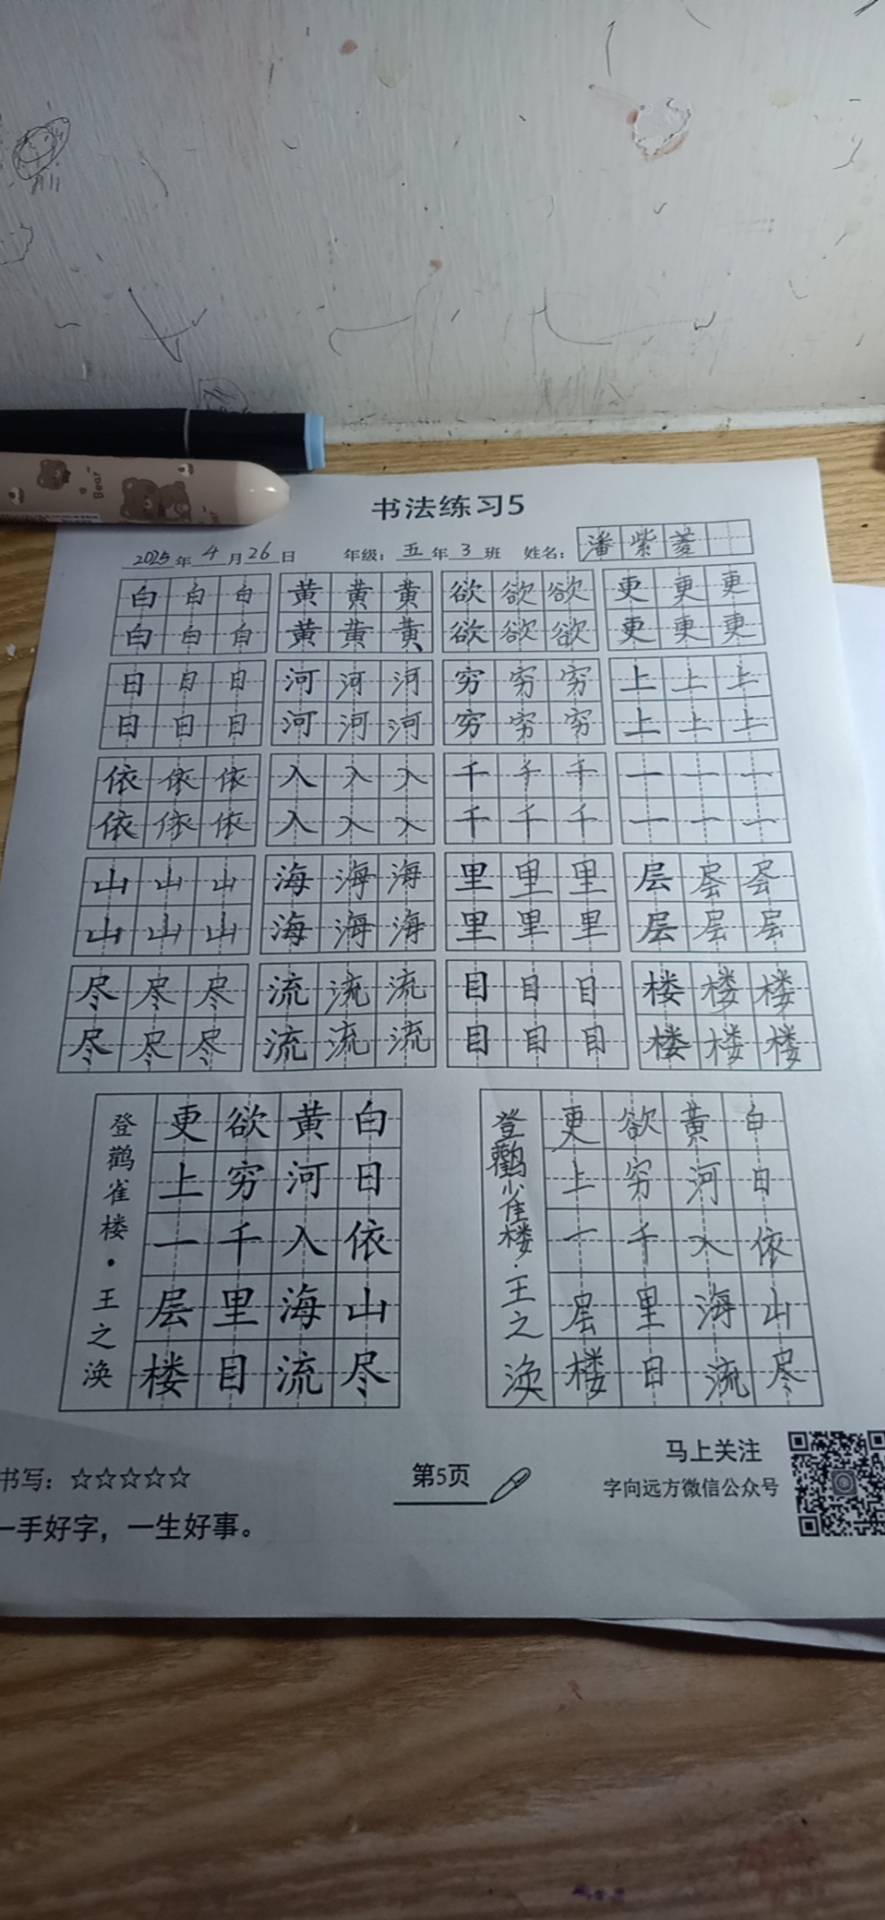 Bear
书法练习5
2025年4月26日 年级：五年3班 姓名：潘紫菱
白白白 黄黄黄 欲欲欲 更更更
白白白 黄黄黄 欲欲欲 更更更
日日日 河河河 穷穷穷 上上上
日日日 河河河 穷穷穷 上上上
依依依 入入入 千千千 一一一
依依依 入入入 千千千 一一一
山山山 海海海 里里里 层层层
山山山 海海海 里里里 层层层
尽尽尽 流流流 目目目 楼楼楼
尽尽尽 流流流 目目目 楼楼楼
白日依山尽
黄河入海流
欲穷千里目
更上一层楼
登鹳雀楼·王之涣
白日依山尽
黄河入海流
欲穷千里日
更上一层楼
登鹳雀楼·王之涣
书写：☆☆☆☆☆
一手好字，一生好事。
第5页
马上关注
字向远方微信公众号